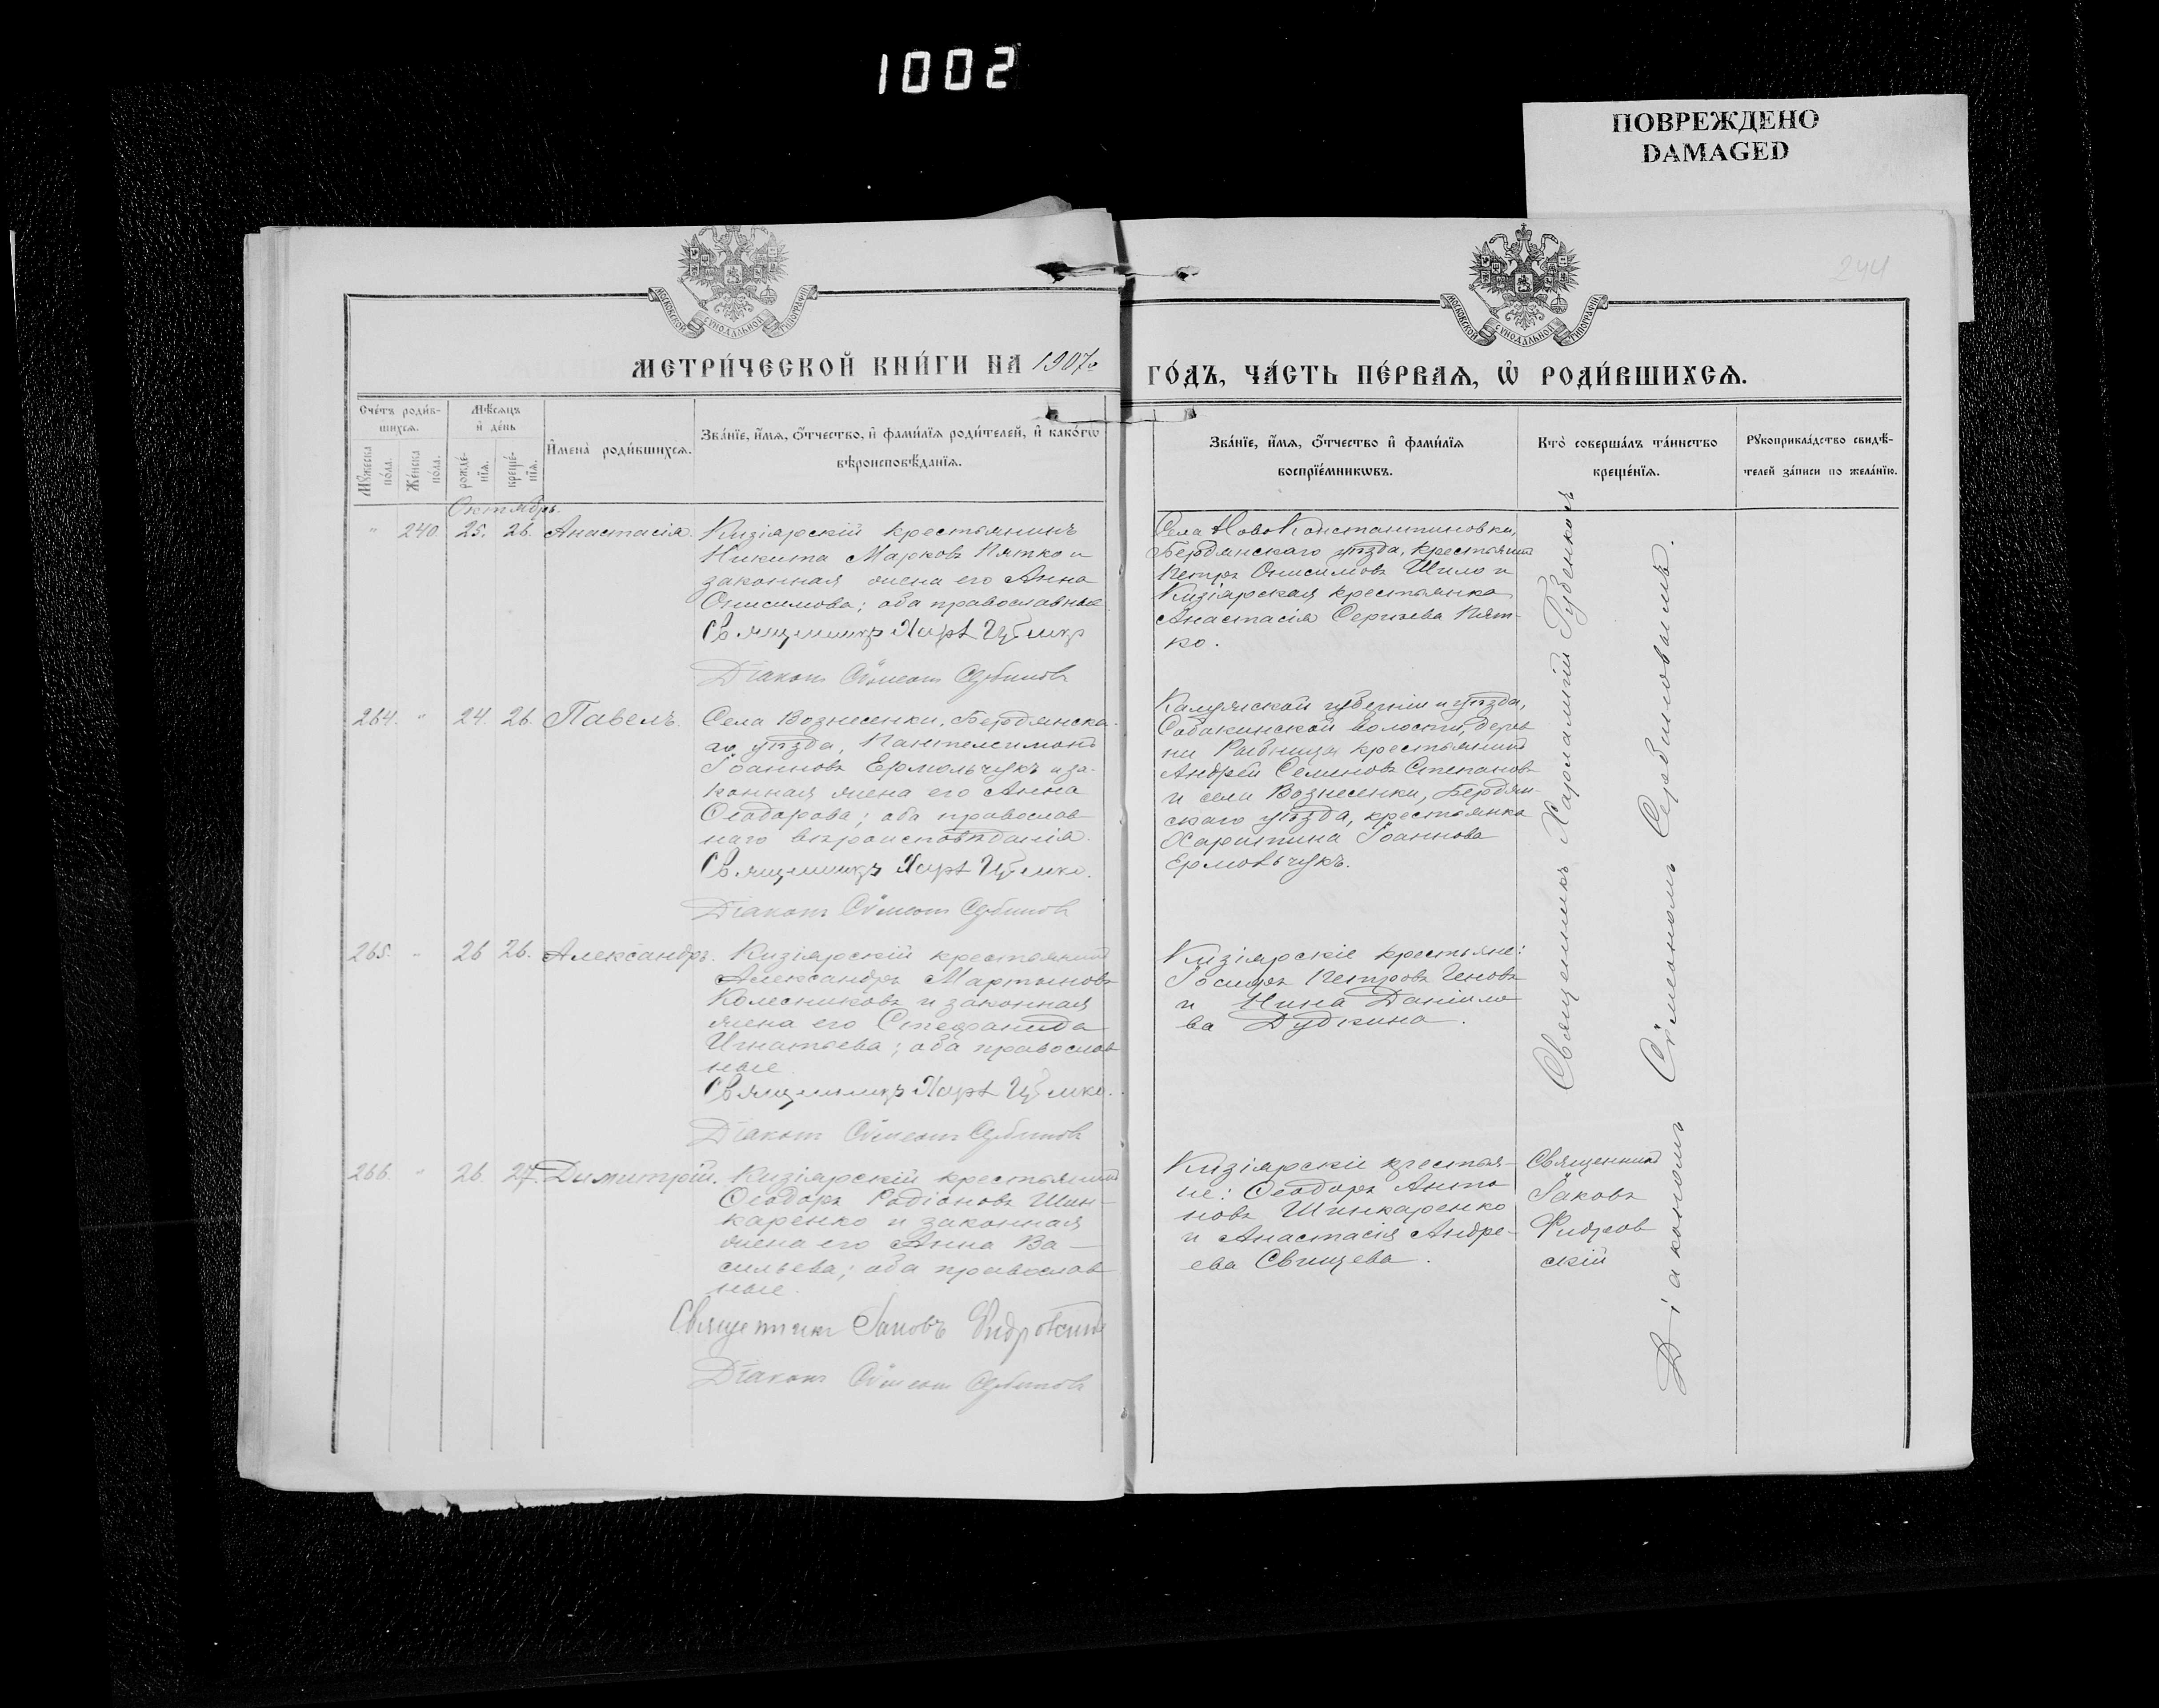 1002
ПОВРЕЖДЕНО
DAMAGED
244
МОСКОВСКОЙ СѴНОДАЛЬНОЙ ТИПОГРАФІИ
МОСКОВСКОЙ СѴНОДАЛЬНОЙ ТИПОГРАФІИ
МЕТРИ́ЧЕСКОЙ КНИ́ГИ НА 1907
ГО́ДЪ, ЧА́СТЬ ПЕ́РВАѦ, Ѽ РОДИ́ВШИХСѦ.
Сче́тъ роди́в-
шихсѧ.
Мꙋ́жеска по́ла.
Же́нска по́ла.
Мѣ́сѧцъ
и҆ де́нь
рожде́-
нїѧ.
креще́-
нїѧ.
И҆мена̀ роди́вшихсѧ.
Зва́нїе, и҆́мѧ, ѻ҆́тчество, и҆ фами́лїѧ роди́телей, и҆ како́гѡ
вѣроисповѣ́данїѧ.
Зва́нїе, и҆́мѧ, ѻ҆́тчество и҆ фами́лїѧ
воспрїе́мникѡвъ.
Кто̀ соверша́лъ та́инство
креще́нїѧ.
Рꙋкоприкла́дство свидѣ́-
телей за́писи по жела́нїю.
Октябрь.
" 240. 25. 26. Анастасія.
Кизіярскій крестьянинъ
Никита Марковъ Пятко и
законная жена его Анна
Онисимова; оба православные
Священникъ
Діаконъ Сѵмеонъ Сербиновъ
Села НовоКонстантиновки,
Бердянскаго уѣзда, крестьянинъ
Петръ Онисимовъ Шило и
Кизіярская крестьянка
Анастасія Сергѣева Пят-
ко.
264. " 24. 26. Павелъ.
Села Вознесенки, Бердянска-
го уѣзда, Пантелеимонъ
Іоанновъ Ермольчукъ и за-
конная жена его Анна
Ѳеодорова; оба православ
наго вѣроисповѣданія.
Священникъ
Діаконъ Сѵмеонъ Сербиновъ
Калужской губерніи и уѣзда,
Собакинской волости, дерев
ни крестьянинъ
Андрей Семеновъ Степановъ
и села Вознесенки, Бердян-
скаго уѣзда, крестьянка
Харитина Іоаннова
Ермольчукъ.
265. " 26 26. Александръ.
Кизіярскій крестьянинъ
Александръ Мартыновъ
Колесниковъ и законная
жена его Стефанида
Игнатьева; оба православ
ные.
Священникъ
Діаконъ Сѵмеонъ Сербиновъ
Кизіярскіе крестьяне:
Іосифъ Петровъ
и Нина Даніило
ва Дудкина.
266. " 26. 27. Димитрій.
Кизіярскій крестьянинъ
Ѳеодоръ Родіоновъ Шин-
каренко и законная
жена его Анна Ва-
сильева; оба православ
ные.
Священникъ Іаковъ
Діаконъ Сѵмеонъ Сербиновъ
Кизіярскіе крестья-
не: Ѳеодоръ Анто
новъ Шинкаренко
и Анастасія Андре-
ева Свищева.
Священникъ
Іаковъ
скій
Священникъ Харлампій
Діакономъ Сѵмеономъ Сербиновымъ.